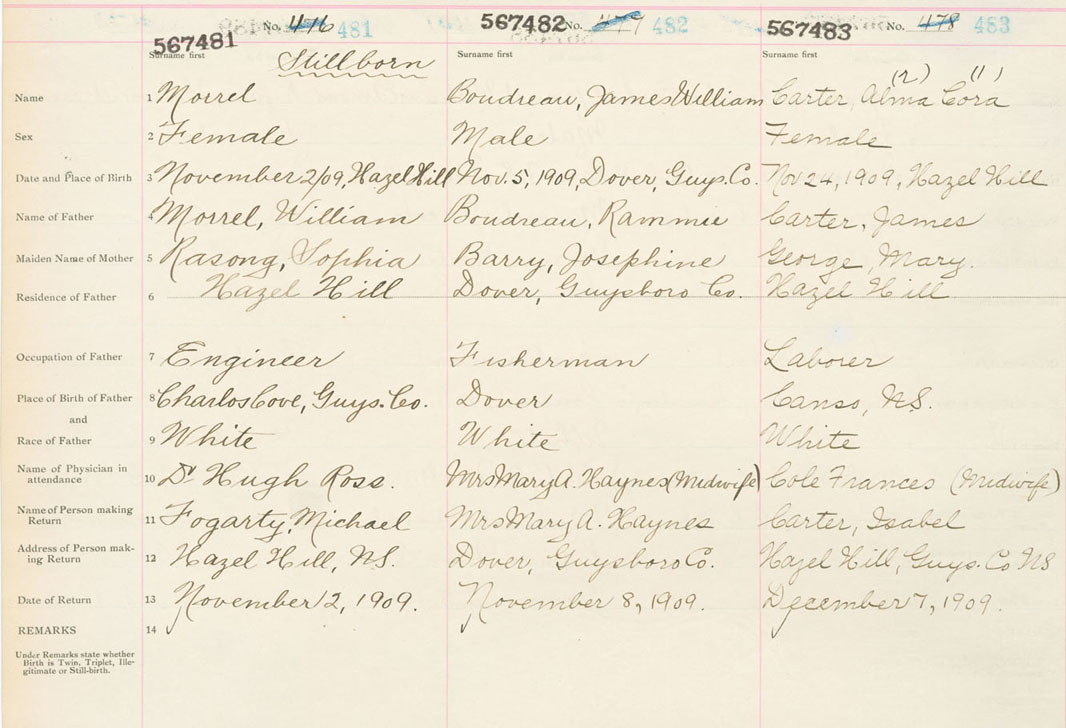 567481 No. 476 481 567482 No. 477 482 567483 No. 478 483
Surname first Stillborn Surname first Surname first
(2) (1)
Name 1 Morrel Boudreau, James William Carter, Alma Cora
Sex 2 Female Male Female
Date and Place of Birth 3 November 2/09, Hazel Hill Nov. 5, 1909, Dover, Guys. Co. Nov 24, 1909, Hazel Hill
Name of Father 4 Morrel, William Boudreau, Rammie Carter, James
Maiden Name of Mother 5 Rasong, Sophia Barry, Josephine George, Mary.
Residence of Father 6 Hazel Hill Dover, Guysboro Co. Hazel Hill
Occupation of Father 7 Engineer Fisherman Laborer
Place of Birth of Father 8 Charlos Cove, Guys. Co. Dover Canso, N.S.
and
Race of Father 9 White White White
Name of Physician in
attendance 10 Dr Hugh Ross. Mrs Mary A. Haynes (Midwife) Cole Frances (Midwife)
Name of Person making
Return 11 Fogarty, Michael Mrs Mary A. Haynes Carter, Isabel
Address of Person mak-
ing Return 12 Hazel Hill, N.S. Dover, Guysboro Co. Hazel Hill, Guys. Co NS
Date of Return 13 November 2, 1909. November 8, 1909. December 7, 1909.
REMARKS 14
Under Remarks state whether
Birth is Twin, Triplet, Ille-
gitimate or Still-birth.